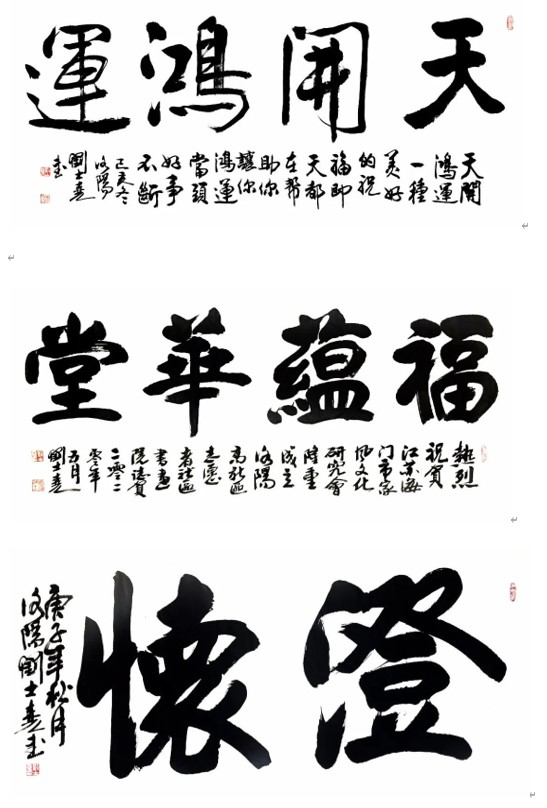 天開鴻運
天開
鴻運
一種
美好
的祝
福即
天都
在幫
助你
讓你
鴻運
當頭
好事
不斷
己亥冬
洛陽
劉士
書
福蘊華堂
熱烈
祝賀
江蘇海
門市家
風文化
研究會
隆重
成立
洛陽
高新區
志愿
者社區
書畫
院誌賀
二零二
零年
五月
劉士
澄懷
庚子年秋月
洛陽劉士書